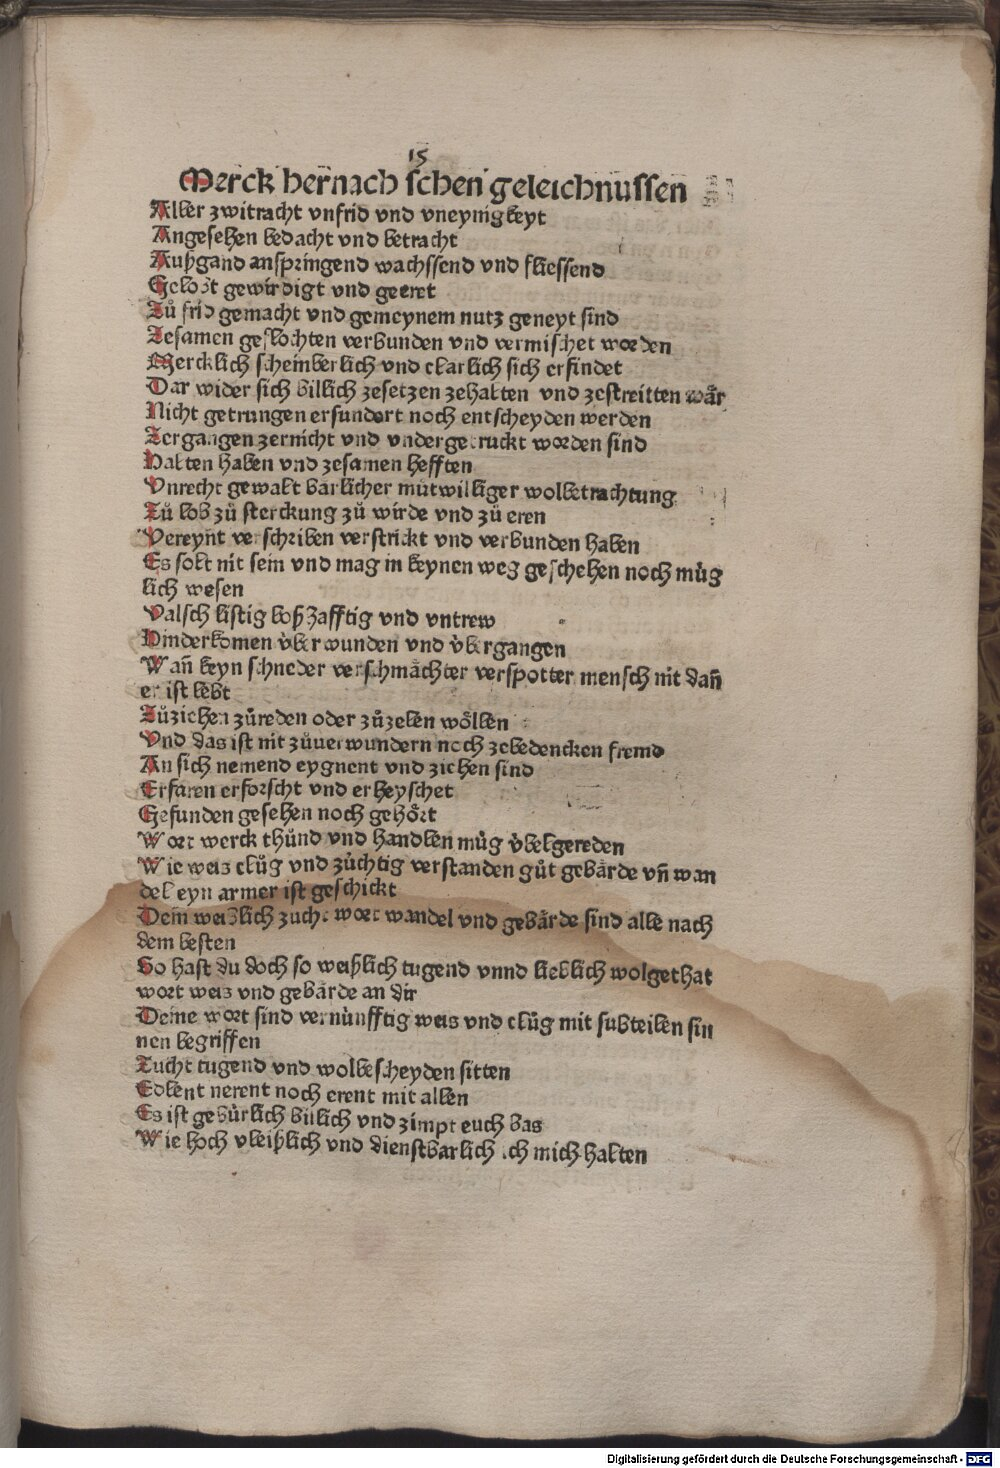 15
Merck hernach schen geleichnussen
Aller zwitracht vnfrid vnd vneynigkeyt
Angesehen bedacht vnd betracht
Außgand anspringend wachssend vnd fliessend
Gelobt gewirdigt vnd geeret
Zů frid gemacht vnd gemeynem nutz geneyt sind
Zesamen geflochten verbunden vnd vermischet worden
Mercklich scheinberlich vnd clarlich sich erfindet
Dar wider sich billich zesetzen zehalten vnd zestreitten wår
Nicht getrungen ersundert noch entscheyden werden
Zergangen zernicht vnd vndergetruckt worden sind
Halten haben vnd zesamen hefften
Vnrecht gewalt barlicher můtwilliger wolbetrachtung
Zů lob zů sterckung zů wirde vnd zů eren
Vereynt verschriben verstrickt vnd verbunden haben
Es solt nit sein vnd mag in keynen weg geschehen noch můg
lich wesen
Valsch listig boßhafftig vnd vntrew
Hinderkomen v̊berwunden vnd v̊bergangen
Wan̄ keyn schneder verschmåchter verspotter mensch nit dan̄
er ist lebt
Zůziehen zůreden oder zůzelen wöllen
Vnd das ist nit zůuerwundern noch zebedencken fremd
An sich nemend eygnent vnd ziehen sind
Erfaren erforscht vnd erheyschet
Gefunden gesehen noch gehört
Wort werck thůnd vnd handlen můg v̊belgereden
Wie weis clůg vnd zůchtig verstanden gůt gebårde vn̄ wan
del eyn armer ist geschickt
Dein weißlich zucht wort wandel vnd gebårde sind alle nach
dem besten
So hast du doch so weißlich tugend vnnd lieblich wolgethat
wort weis vnd gebårde an dir
Deine wort sind vernůnfftig weis vnd clůg mit subteilen sin
nen begriffen
Zucht tugend vnd wolbescheyden sitten
Edlent nerent noch erent mit allen
Es ist gebůrlich billich vnd zimpt euch bas
Wie hoch vleißlich vnd dienstbarlich ich mich halten
Digitalisierung gefördert durch die Deutsche Forschungsgemeinschaft - DFG